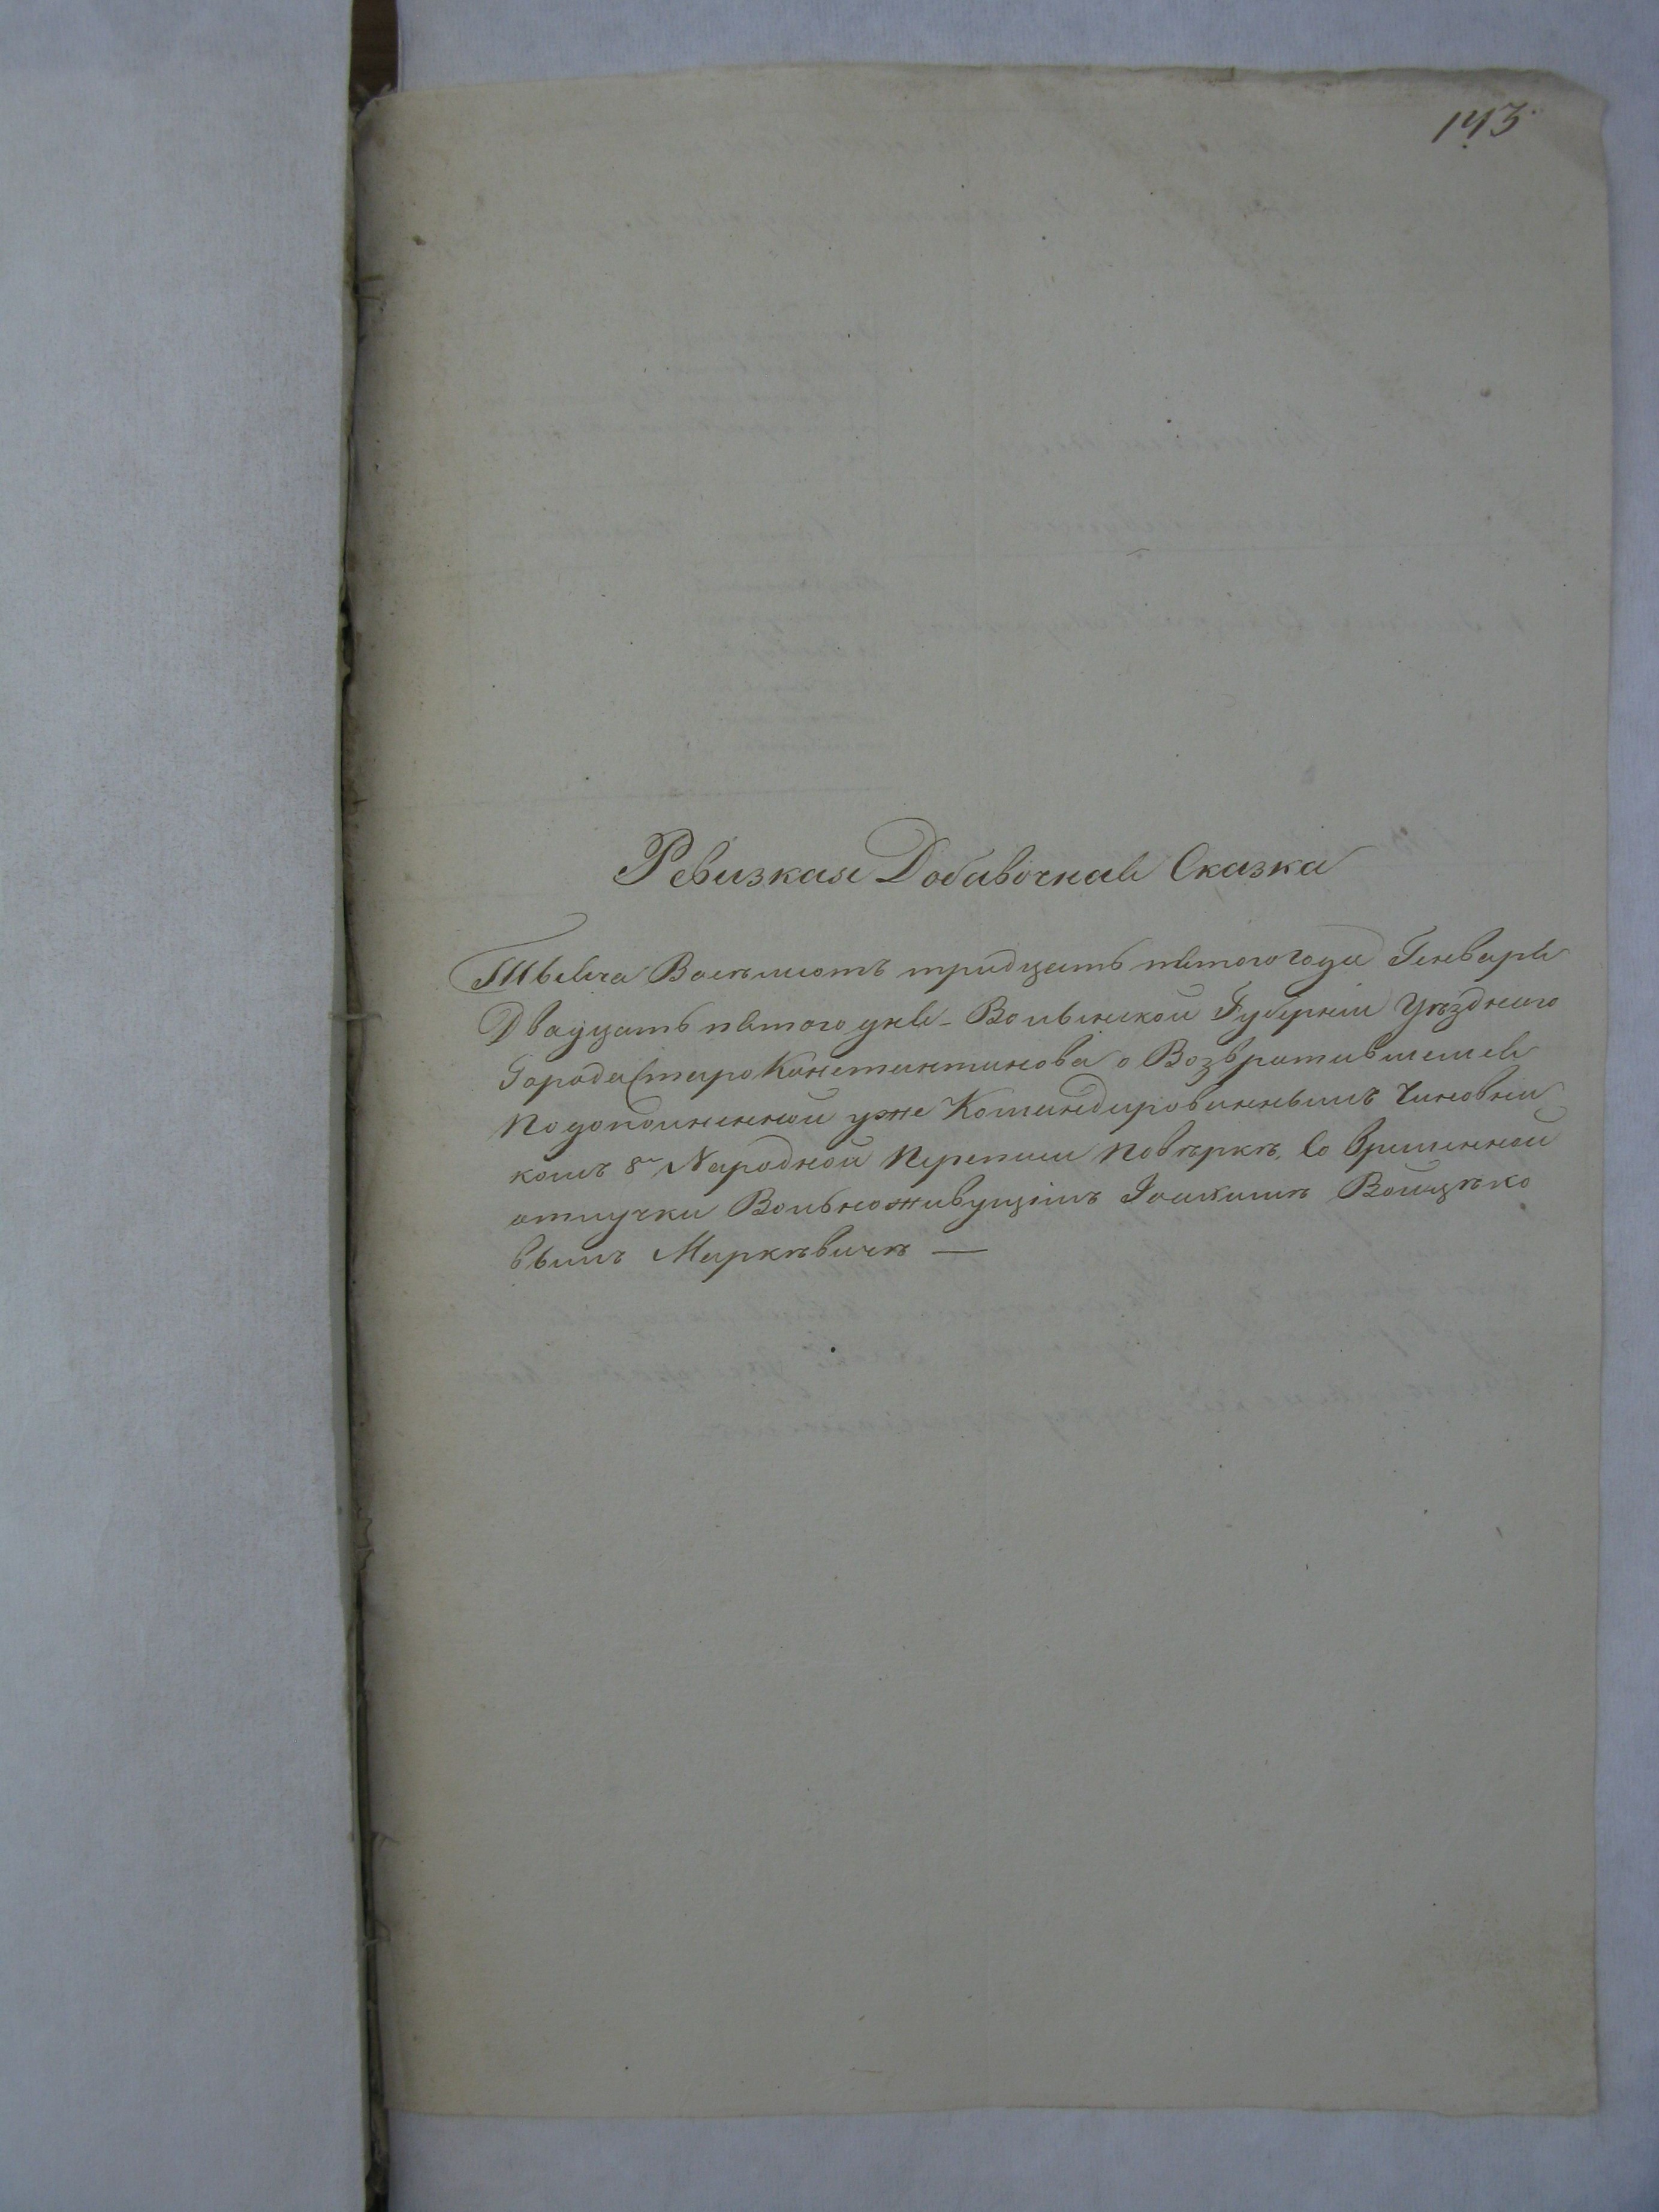 143
Ревизкая Добавочная Сказка
Тысяча Восѣмсотъ тридцать пятого года Генваря
Двадцать пятого дня - Волынской Губерніи Уѣздного
Города Староконстантинова о Возвратившемся
По дополненной уже Командированнымъ Чиновни
комъ 8й Народной Переписи Повѣркѣ, Со временной
отлучки Вольноживущимъ Іоакимѣ Войцѣко
вымъ Маркѣвичѣ —